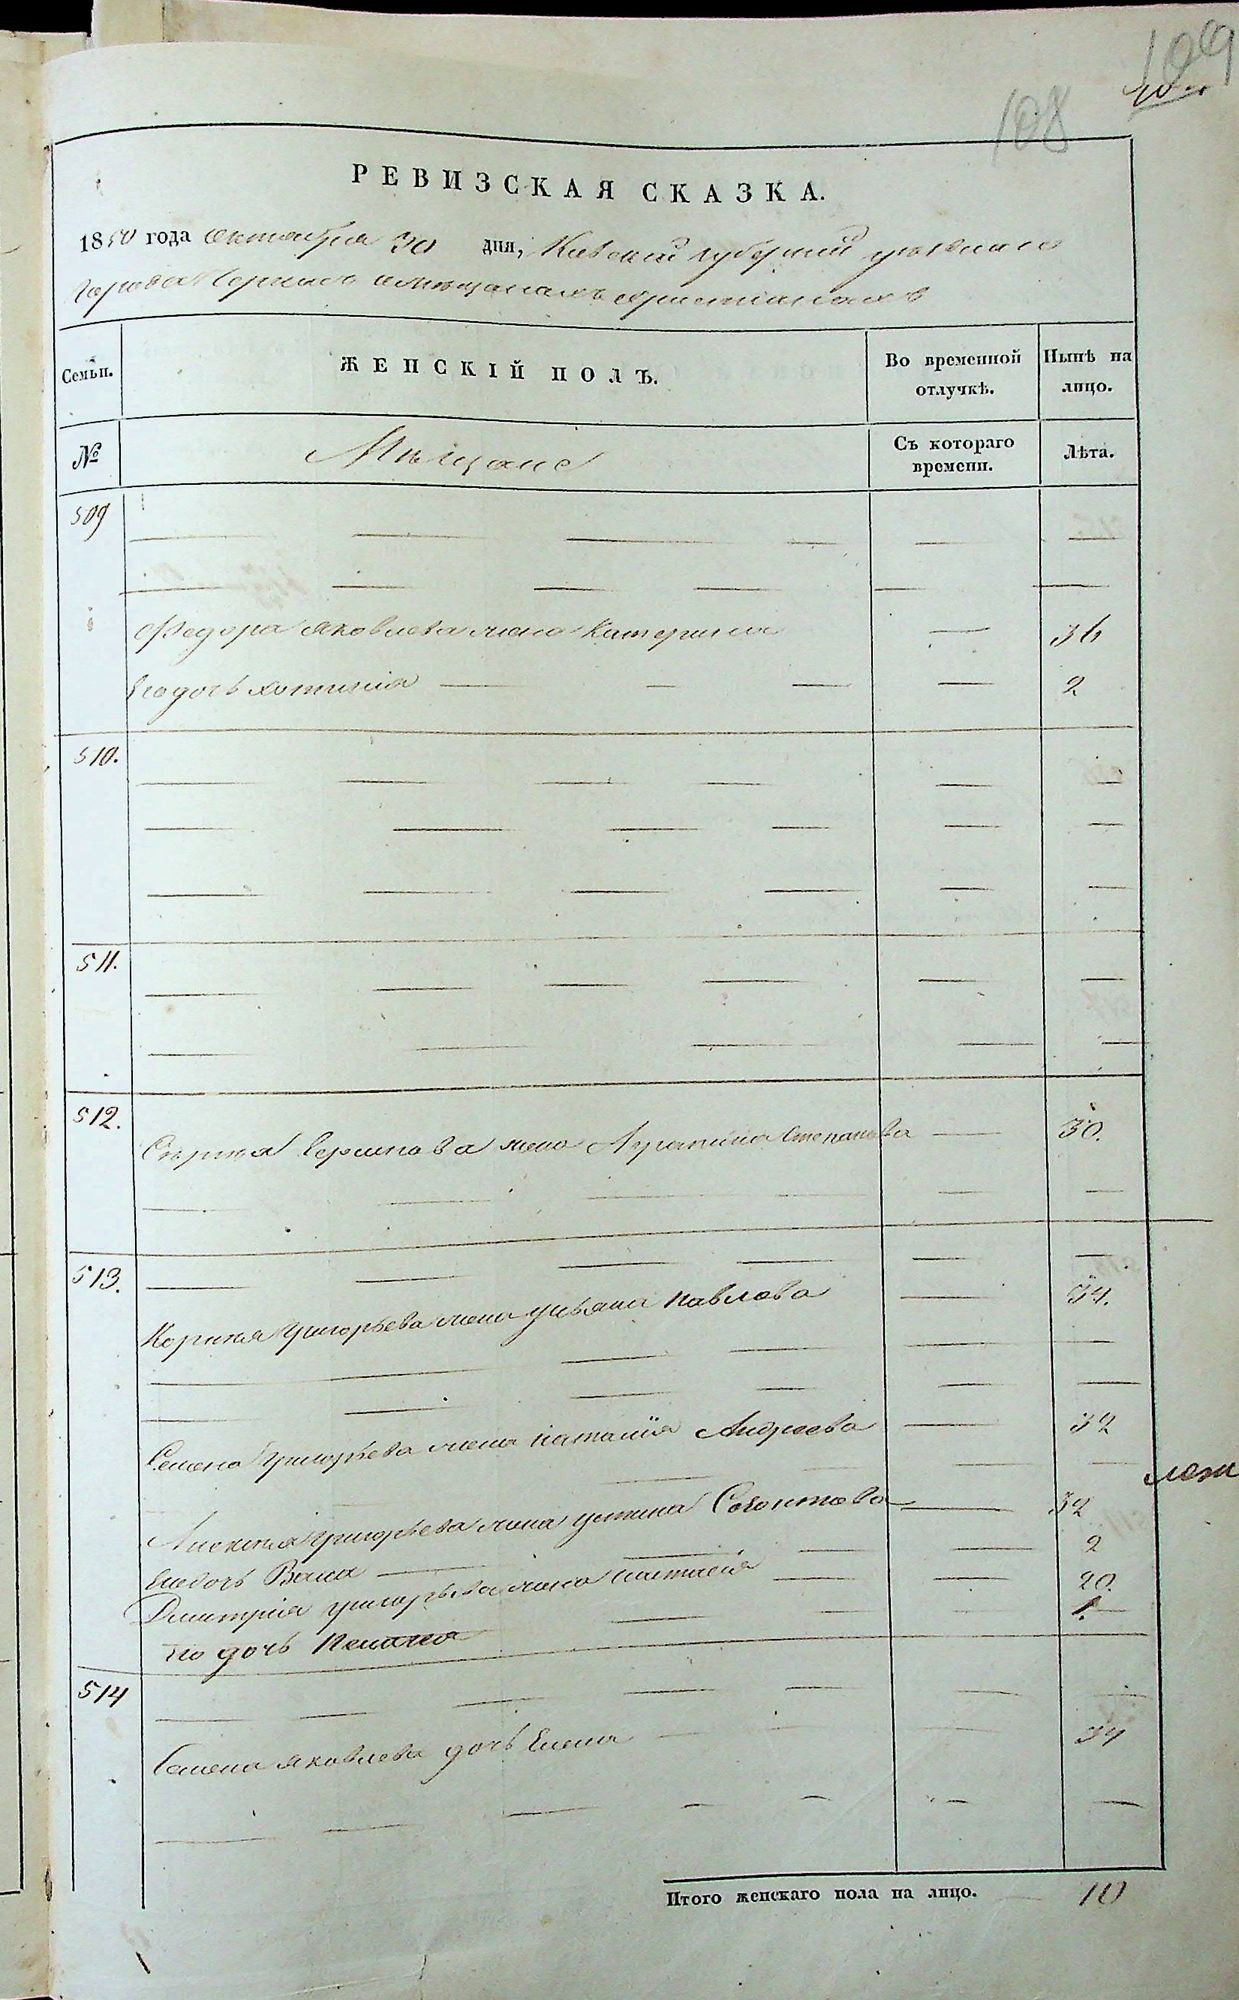 109
108
РЕВИЗСКАЯ СКАЗКА.
1850 года октября 30 дня, Киевской губернии уезднаго
города о мещанахъ христианахъ
Семьи.
ЖЕНСКІЙ ПОЛЪ.
Во временной отлучкѣ.
Нынѣ на лицо.
№
Мещане
Съ котораго времени.
Лѣта.
509
Федора Яковлева жена Катерина 36
Его дочь Хотина 2
510.
511.
512.
Сергия жена Степанова 30.
513.
Корнея Григорьева жена Ульяна Павлова 34.
Семена Григорьева жена Наталія Андреева 32
Алексея Григорьева жена Устина 32
Ея дочь 2
Дмитрия Григорьева жена Настасия 20.
его дочь 1.
514
Семена Яковлева дочь Елена 34
Итого женскаго пола на лицо. 10